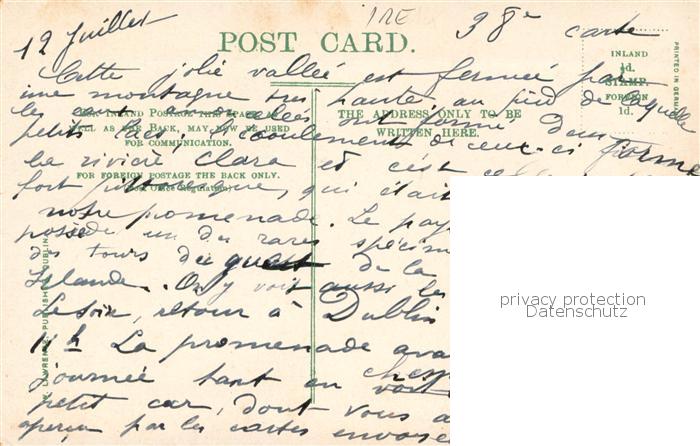 IRE
12 Juillet
38e carte
POST CARD.
INLAND
½d.
STAMP.
FOREIGN
1d.
PRINTED IN GERMANY
Cette jolie vallée est fermée par
une montagne très haute, au pied de laquelle
les eaux amoncelées ont formé deux
petits lacs. L'écoulement de ceux-ci forme
la rivière Clara et c'est
fort pittoresque, qui était
notre promenade. Le pays
possède un des rares spécim
des tours de guet de la
Islande. On y voit aussi les
Le soir, retour à Dublin
11h La promenade ava
journée tant en
petit car, dont vous a
aperçu par les cartes envoyé
FOR INLAND POSTAGE THIS SPACE AS
WELL AS THE BACK, MAY NOW BE USED
FOR COMMUNICATION.
FOR FOREIGN POSTAGE THE BACK ONLY.
(Post Office Regulation)
THE ADDRESS ONLY TO BE
WRITTEN HERE.
LAWRENCE, PUBLISHER, DUBLIN.
privacy protection
Datenschutz